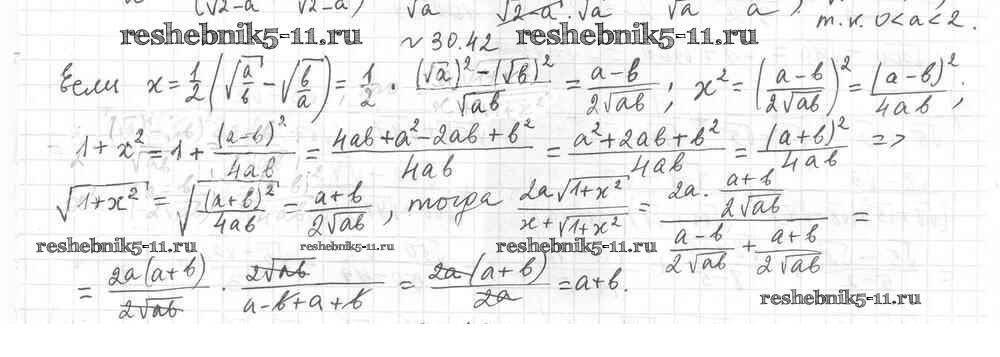 (√2-a √2-a) √a √2-a · √a √a a , т.к. 0<a<2.
reshebnik5-11.ru reshebnik5-11.ru
~ 30.42
Если x = 1/2 (√(a/b) - √(b/a)) = 1/2 · ((√a)² - (√b)²)/√ab = (a-b)/(2√ab) ; x² = ((a-b)/(2√ab))² = (a-b)²/4ab ;
1 + x² = 1 + (a-b)²/4ab = (4ab + a² - 2ab + b²)/4ab = (a² + 2ab + b²)/4ab = (a+b)²/4ab =>
√(1+x²) = √((a+b)²/4ab) = (a+b)/(2√ab) , тогда (2a√(1+x²))/(x + √(1+x²)) = (2a · (a+b)/(2√ab))/((a-b)/(2√ab) + (a+b)/(2√ab)) =
reshebnik5-11.ru reshebnik5-11.ru reshebnik5-11.ru
= (2a(a+b))/(2√ab) · (2√ab)/(a-b+a+b) = (2a(a+b))/2a = a+b.
reshebnik5-11.ru